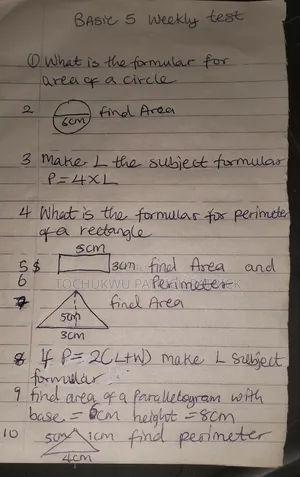 BASIC 5 Weekly test
① What is the formular for
area of a circle
2 6cm find Area
3 Make L the subject formular
P=4×L
4 What is the formular for perimeter
of a rectangle
5cm
5 & 3cm find Area and
6 Perimeter
TOCHUKWU PA K
7 find Area
5cm
3cm
8 if P=2(L+W) make L subject
formular
9 find area of a Parallelogram with
base = 6cm height = 8cm
10 5cm 1cm find perimeter
4cm